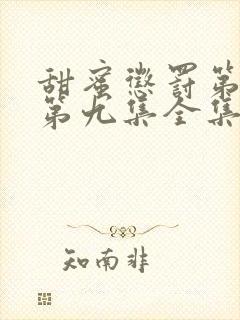 甜蜜惩罚第
第九集全集
知南非